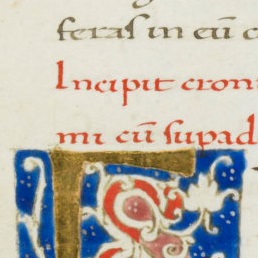 feras in eū c
Incipit croni
mi cū supad